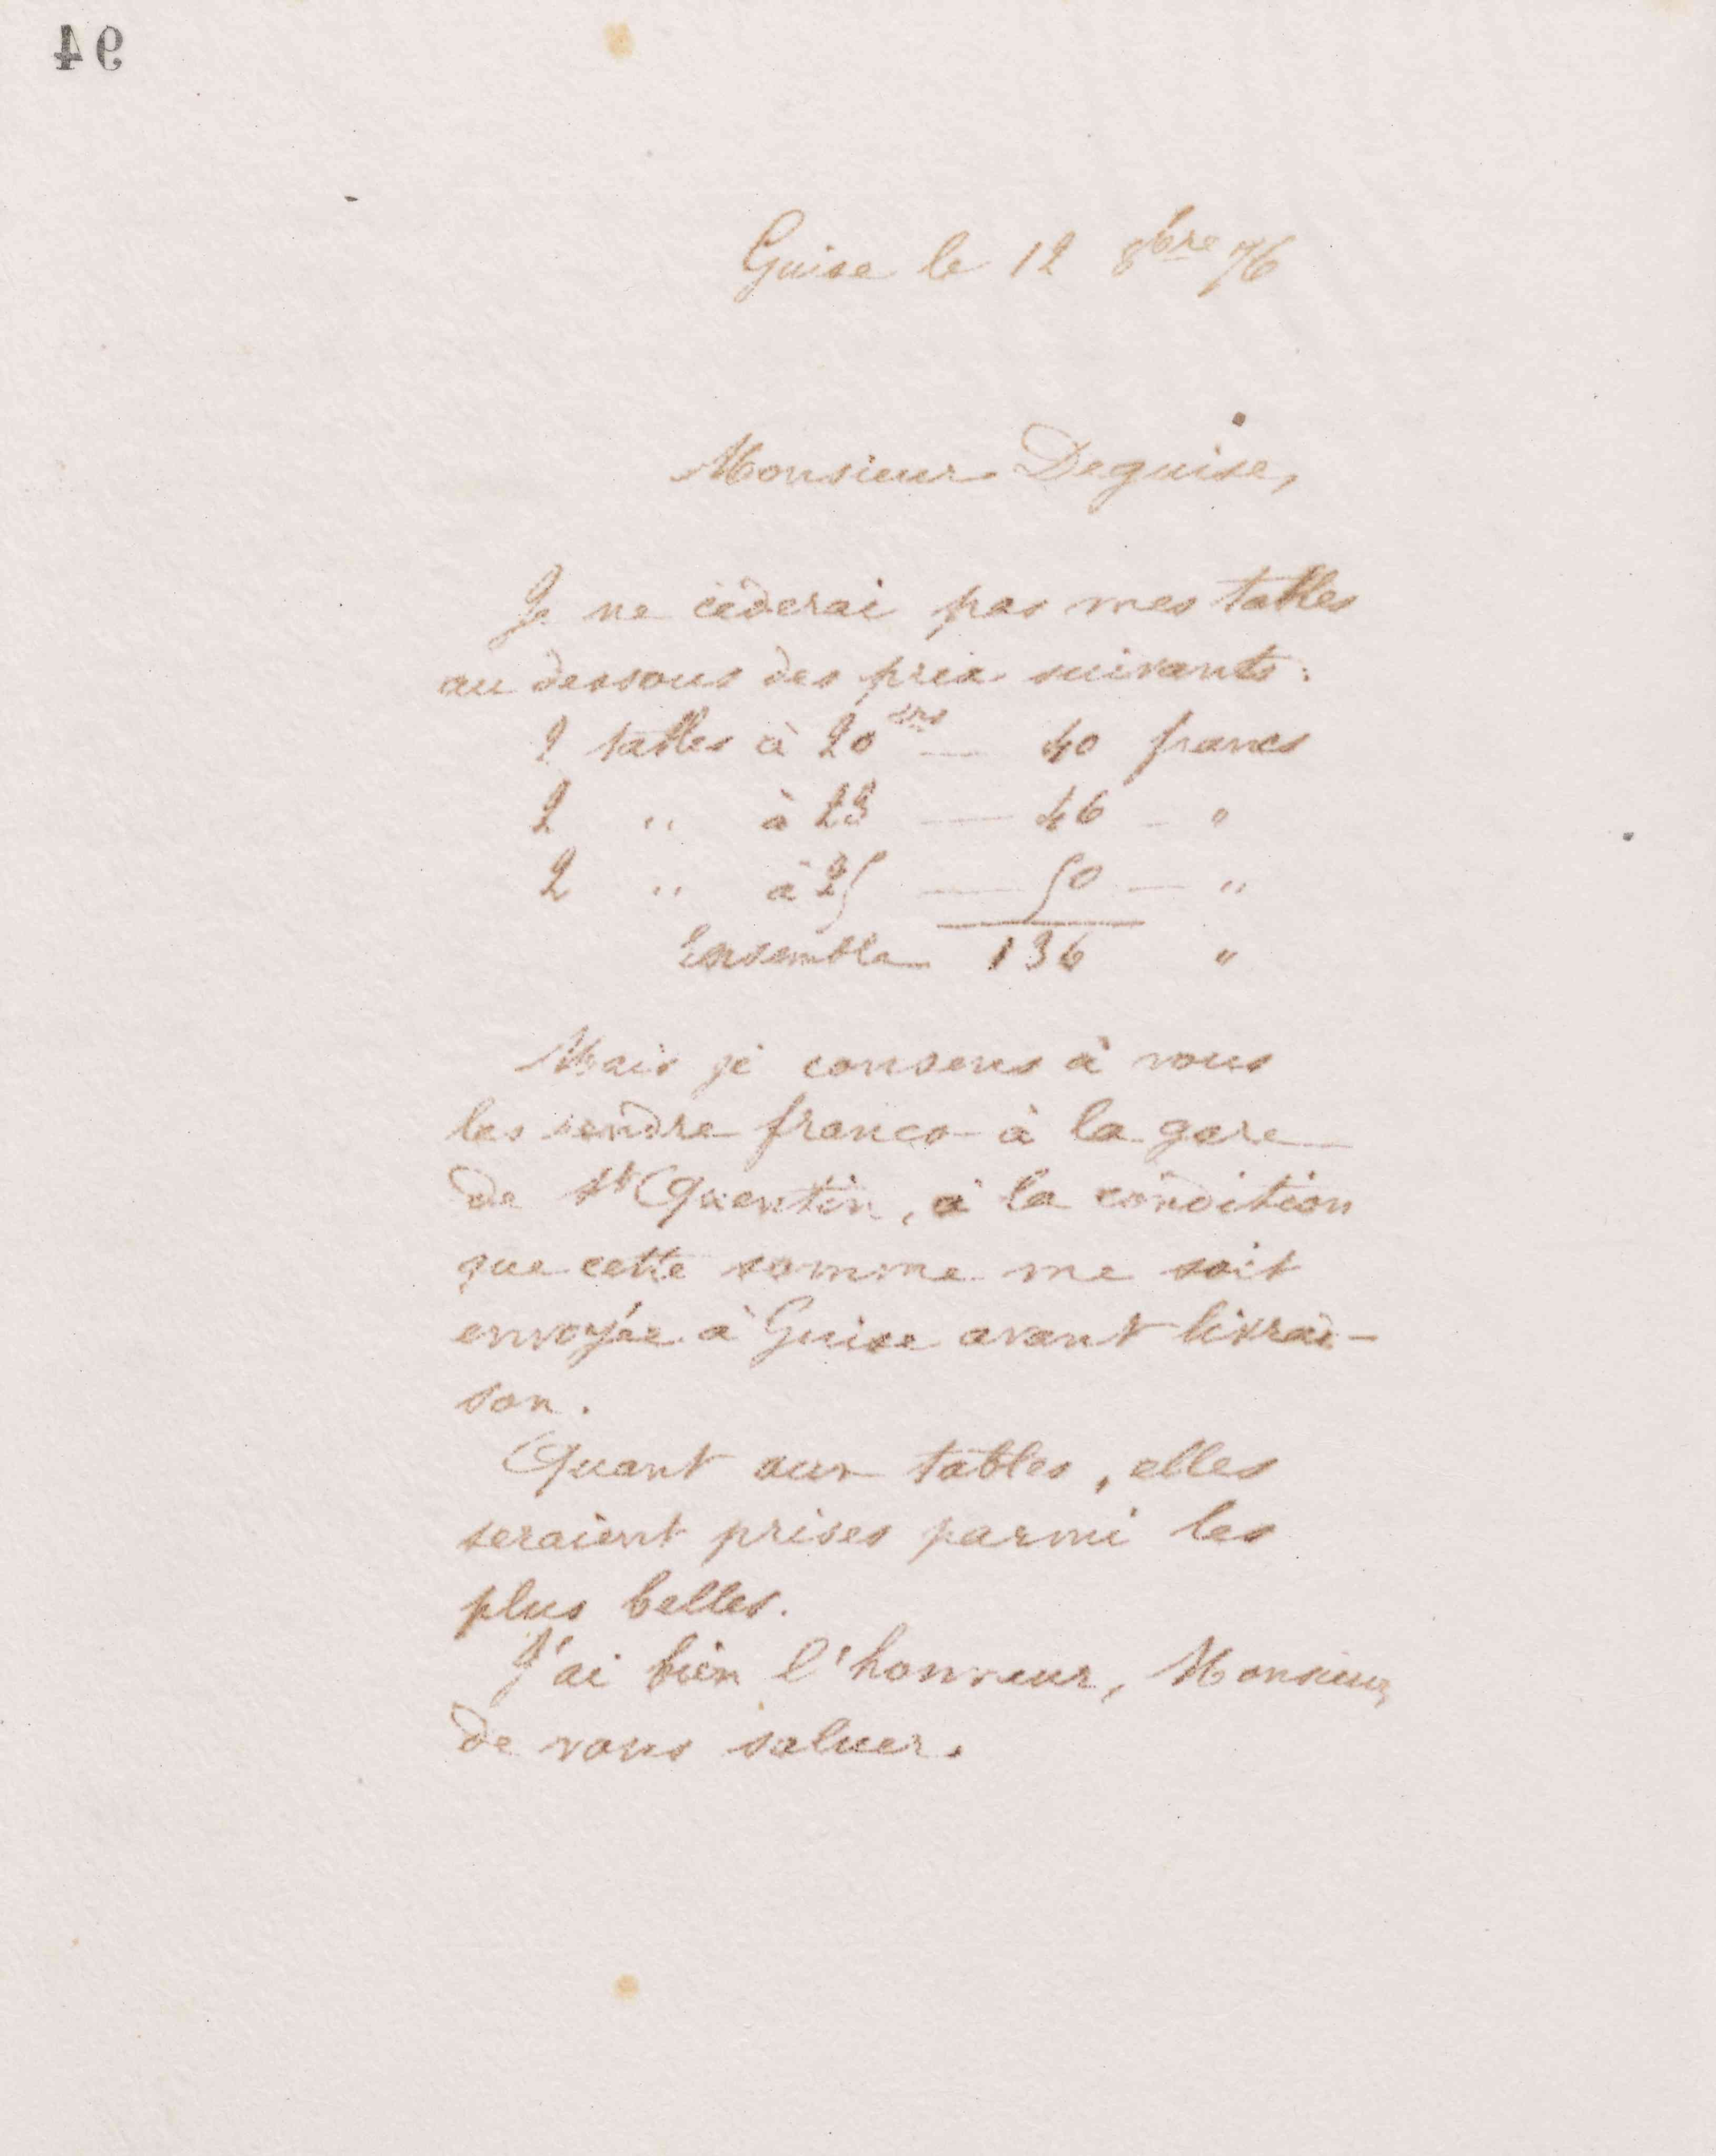 94
Guise le 12 8bre 76
Monsieur Deguise,
Je ne cèderai pas mes tables
au dessous des prix suivants:
2 tables à 20 frs — 40 francs
2 " à 23 — 46 — "
2 " à 25 — 50 — "
Ensemble 136 "
Mais je consens à vous
les rendre franco à la gare
de St Quentin, à la condition
que cette somme me soit
envoyée à Guise avant livrai-
son.
Quant aux tables, elles
seraient prises parmi les
plus belles.
J'ai bien l'honneur, Monsieur,
de vous saluer.